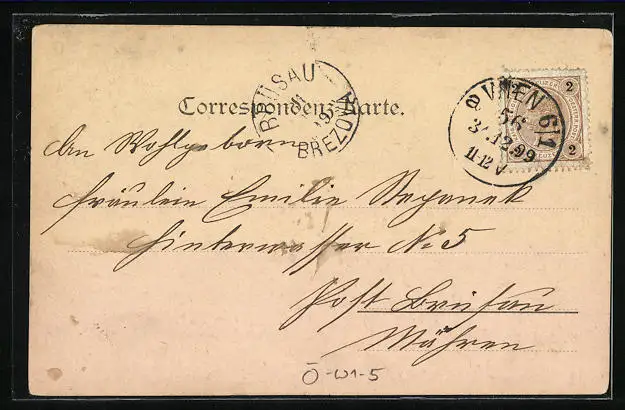 Correspondenz-Karte.
BRÜSAU
BREZOVÁ
WIEN 6/1
31.12.99
11-12 V
2
2
An Wohlgeborn
Fräulein Emilie Stepanek
Hinterwasser No 5
Post Brüsau
Mähren
Ö-W1-5